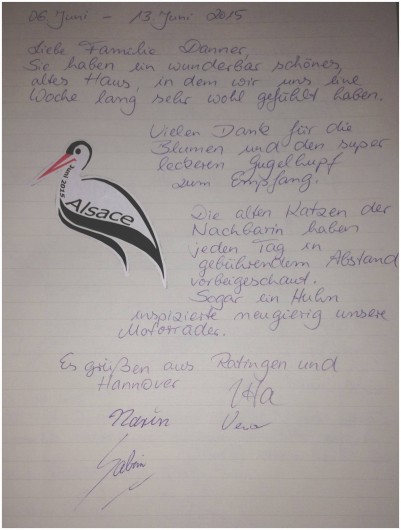 06. Juni - 13. Juni 2015
Liebe Familie Danner,
Sie haben ein wunderbar schönes,
altes Haus, in dem wir uns eine
Woche lang sehr wohl gefühlt haben.
Vielen Dank für die
Blumen und den super
leckeren Gugelhupf
zum Empfang.
Juni 2015
Alsace
Die alten Katzen der
Nachbarin haben
jeden Tag in
gebührendem Abstand
vorbeigeschaut.
Sogar ein Huhn
inspizierte neugierig unsere
Motorräder.
Es grüßen aus Ratingen und
Hannover
Uta
Vera
Sabine